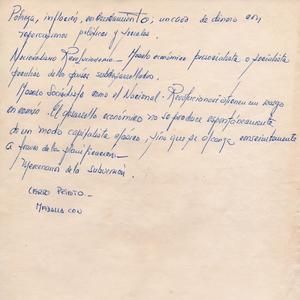 Pobreza, inflación, endeudamiento; un caso de dinero con
repercusiones políticas y sociales.
Nacionalismo Revolucionario - Modelo económico presocialista o socialista
de países subdesarrollados.
Modelo Socialista como el Nacional-Revolucionario tienen un rasgo
en común. El desarrollo económico no se produce espontáneamente
de un modo capitalista clásico, sino que se alcanza conscientemente
a través de la planificación.
de la subversión.
CERRO PRIETO -
CON